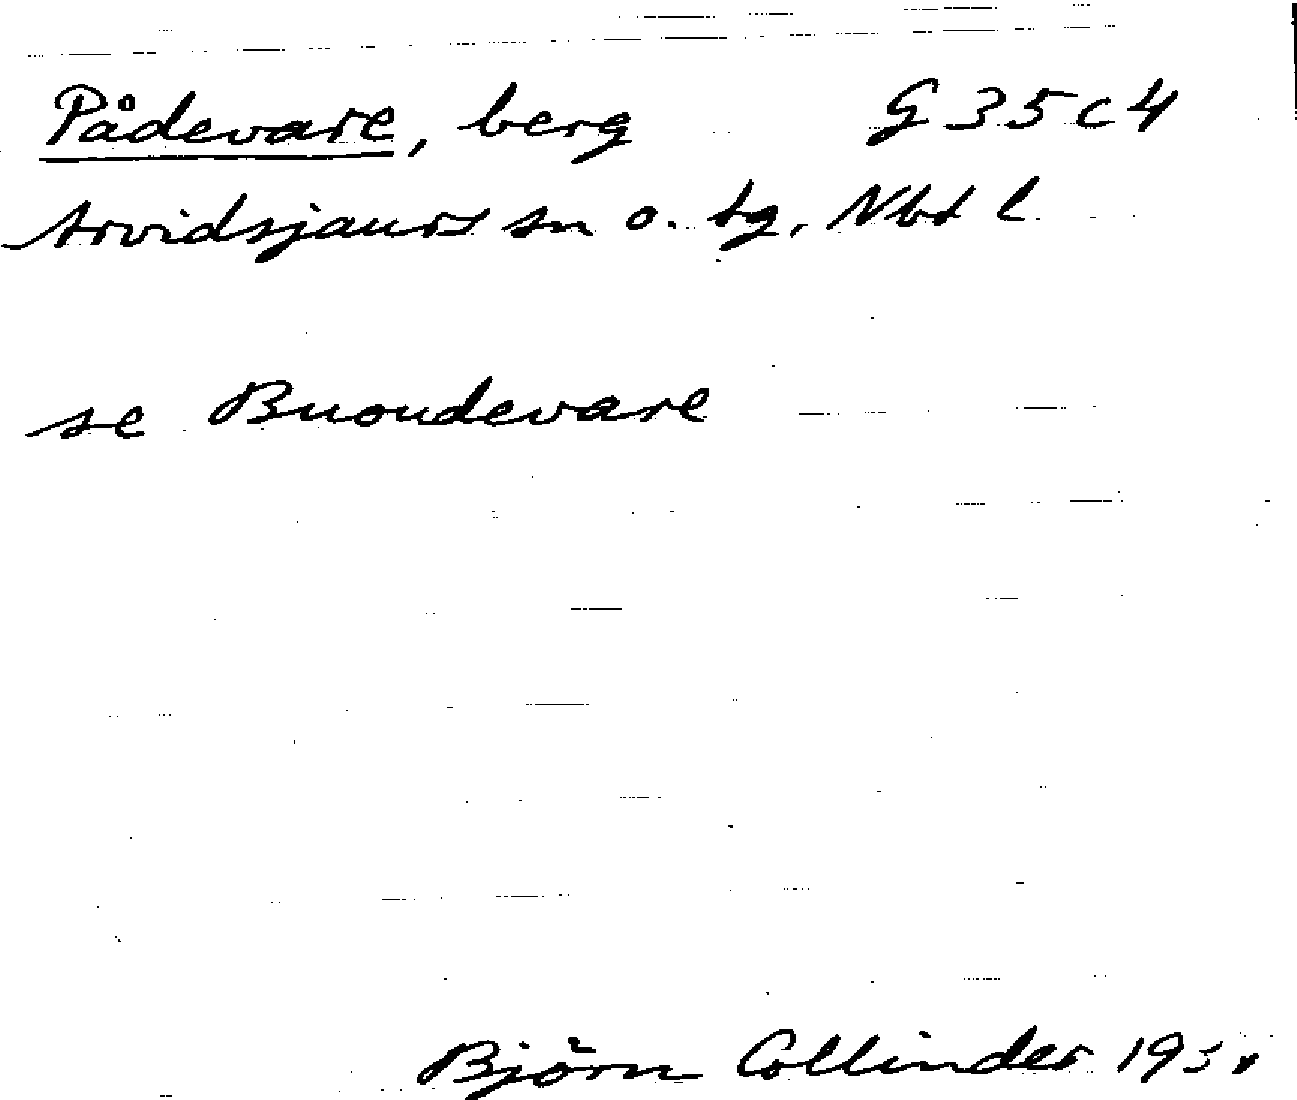 Pådevare, berg G 35 c 4
Arvidsjaurs sn o. tg, Nbt l
se Buoudevare
Björn Collinder